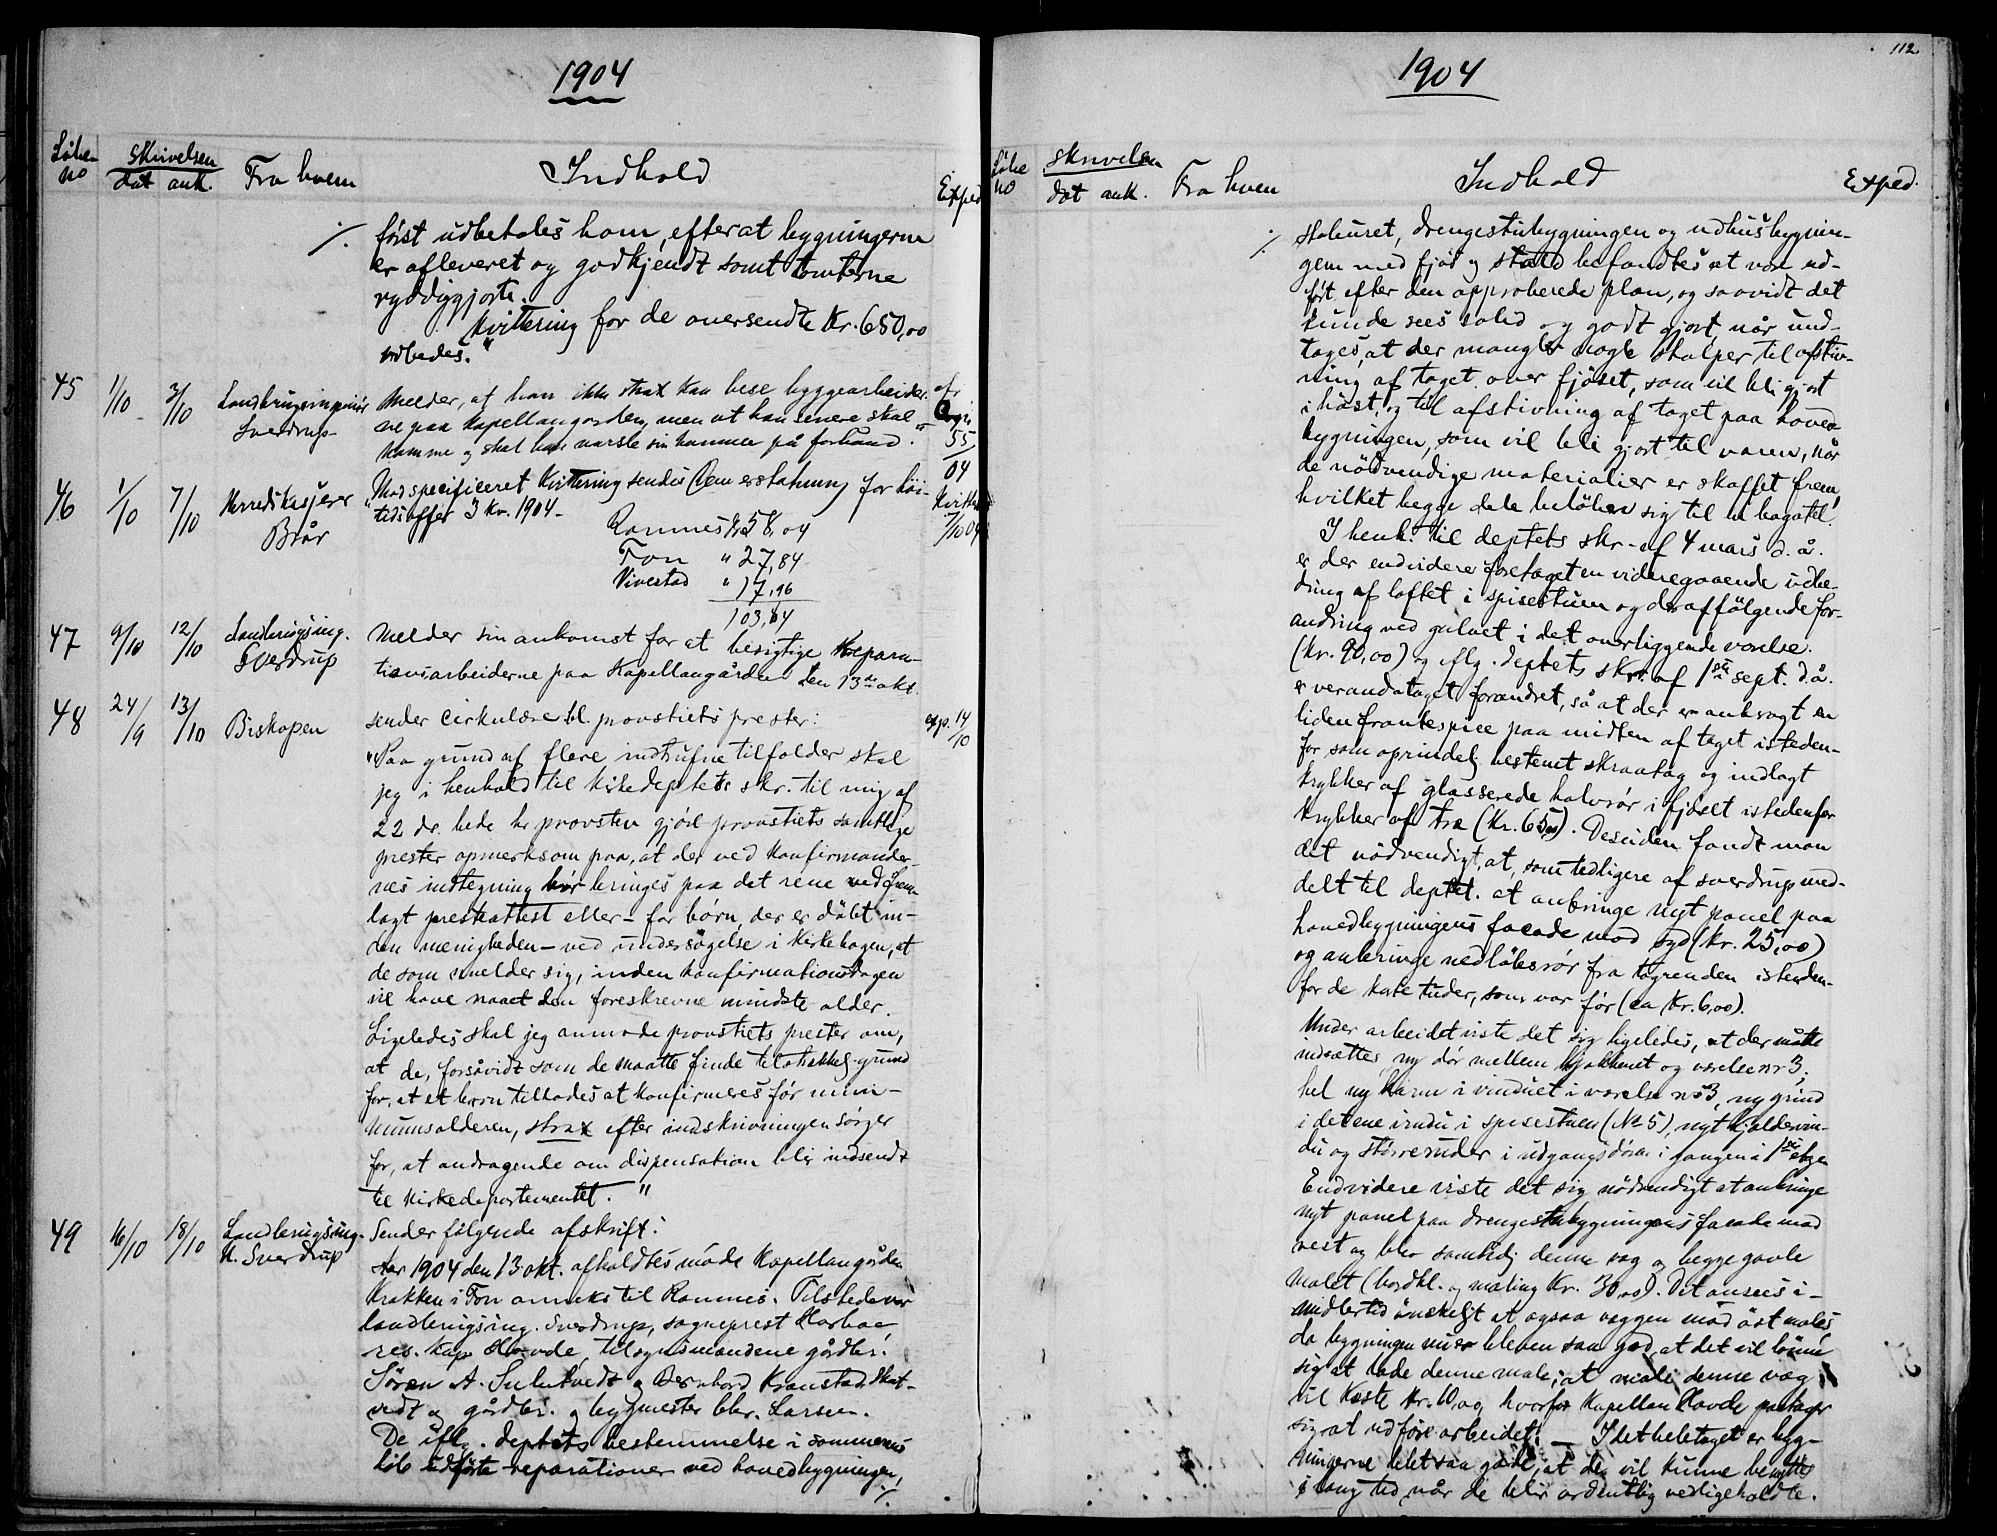 1904
Løbe-
no
Skrivelsen
dat. ank.
Fra hvem
Indhold
Exped
·/. först udbetales ham, efterat bygningerne
er afleveret og godkjendt samt tomterne
ryddiggjorte.
Kvittering for de oversendte Kr. 650,00
udbedes."
45 1/10 3/10 Landbrugsingeniør Sverdrup
Melder, at han ikke strax kan bese byggearbeider-
ne paa Kapellangarden, men at han senere skal
komme og skal han varsle sin komme på forhånd.
55/04
46 1/10 7/10 Herredskasjerer Brår
"Mod specificeret Kvittering sendes Dem erstatning for höi-
tidsoffer 3 Kv. 1904.-
Ramnes Kr 58,04
Fon " 27,84
Vivestad " 17,96
103,84
Kvitt. 7/10 04
47 9/10 12/10 Landbrugsing. Sverdrup
Melder sin ankomst for at besigtige Repara-
tionsarbeiderne paa Kapellangården den 13de okt.
48 24/9 13/10 Biskopen
sender cirkulære til provstiets prester:
exp. 14/10
"Paa grund af flere indtrufne tilfælder skal
jeg i henhold til Kirkedeptets skr. til mig af
22 ds. bede hr provsten gjöre provstiets samtlige
prester opmerksom paa, at der ved konfirmander-
nes indtegning bör bringes paa det rene ved frem-
lagt prestattest eller - for börn, der er döbt in-
den menigheden - ved undersögelse i Kirkebogen, at
de som melder sig, inden konfirmationsdagen
vil have naaet den foreskrevne mindste alder.
Ligeledes skal jeg anmode provstiets prester om,
at de, forsåvidt som de maatte finde tilstrækkelig grund
for, at et barn tillades at konfirmeres för mini-
mumsalderen, strax efter indskrivningen sörger
for, at andragende om dispensation blir indsendt
til Kirkedepartementet."
49 16/10 18/10 Landbrugsing. U. Sverdrup
Sender fölgende afskrift:
Aar 1904 den 13 okt. afholdtes möde Kapellangården
Krakken i Fon anneks til Ramnes. Tilstede var
landbrugsing. Sverdrup, sogneprest Horboe,
res. kap Hovde, tilsynsmændene gårdbr.
Sören A. Sulutvedt og Bernhard Kranstad Skat-
vedt og gårdbr. og bygmester Chr. Larsen.
De iflg. deptets bestemmelse i sommerens
löb udförte reparationer ved hovedbygningen,
·/.
112
1904
Løbe
no
Skrivelsen
dat ank.
Fra hvem
Indhold
Exped.
·/. staburet, drengestubygningen og udhusbygnin-
gen med fjös og stald befandtes at være ud-
fört efter den approberede plan, og saavidt det
kunde sees solid og godt gjort, når und-
tages, at der mangler nogle stolper til afstiv-
ning af taget over fjöset, som vil bli gjort
i höst, og til afstivning af taget paa hoved-
bygningen, som vil bli gjort til vaaren, når
de nödvendige materialier er skaffet frem,
hvilket begge dele belöber sig til en bagatel.
I henh. til deptets skr. af 4 mars d. å.
er der endvidere foretaget en videregaaende udbe-
dring af loftet i spisestuen og deraffölgende for-
andring ved gulvet i det overliggende værelse.
(Kr. 90,00) og iflg. deptets skr. af 1ste sept. d.å.
er verandataget forandret, så at der er anbragt en
liden frontespice paa midten af taget isteden-
for som oprindelig bestemt skraatag og indlagt
krybber af glasserede halvrör i fjöset istedenfor
krybber af træ (Kr. 65,00). Desuden fandt man
det nödvendigt, at, som tidligere af Sverdrup med-
delt til deptet. at anbringe nyt panel paa
hovedbygningens facade mod syd (Kr. 25,00)
og anbringe nedlöbsrör fra tagrenden isteden-
for de kaste tuder, som var för (ca Kr. 6,00).
Under arbeidet viste det sig ligeledes, at der måtte
indsættes ny dör mellem kjökkenet og værelse nr 3,
hel ny karm i vinduet i værelse no 3, ny grind
i det ene vindu i spisestuen (No 5), nyt kjeldervin-
du og större ruder i udgangsdören i gangen i 1ste etage
Endvidere viste det sig nödvendigt at anbringe
nyt panel paa drengestubygningens facade mod
vest og blev samtidig denne væg og begge gavle
malet (bordkl. og maling Kr. 30,00). Det ansees i-
midlertid önskeligt at ogsaa væggen mod öst males
da bygningen nu er bleven saa god, at det vil lönne
sig at lade denne male; at male denne væg
vil koste Kr. 10,00 hvorfor Kapellan Hovde paatager
sig at udföre arbeidet. - I det hele taget er byg-
ningerne blet saa gode, at de vil kunne benyttes
i lang tid, når de blir ordentlig vedligeholdte.